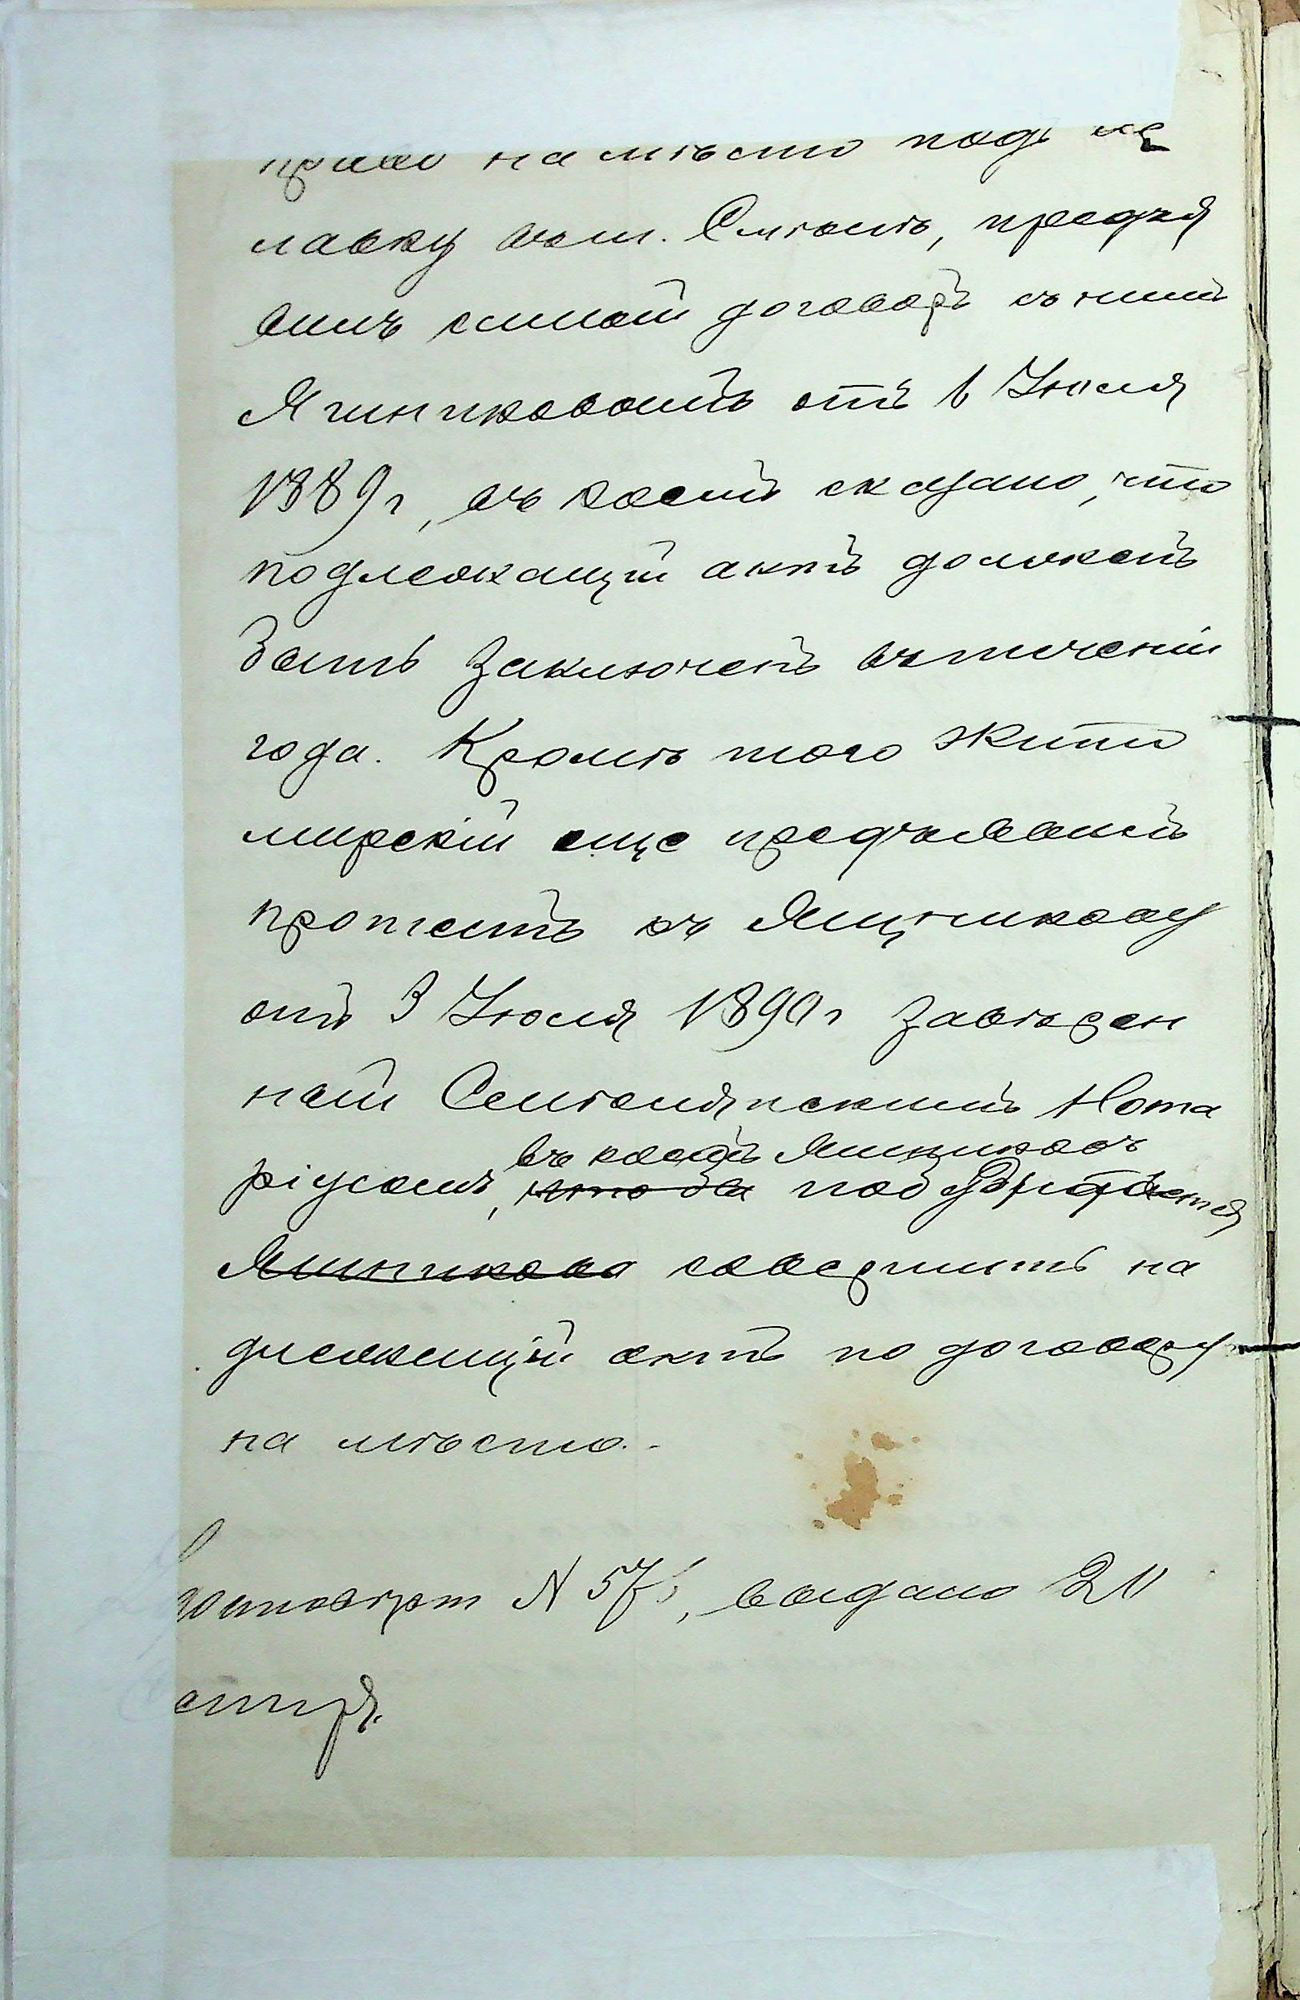 право на мѣсто подъ
лавку въ м. Смѣлѣ, предъя
вилъ самый договоръ съ нимъ
Яшниковымъ отъ 1 Іюля
1889 г, въ коемъ сказано, что
подлежащій актъ долженъ
быть заключенъ въ теченіи
года. Кромѣ того Жито
мирскій еще предъявилъ
протестъ къ Яшникову
отъ 3 Іюля 1890 г завѣрен
ный Смѣлянскимъ Нота
въ коемъ Яшниковъ
ріусомъ, чтобы понуждается
Яшникова совершить на
длежащій актъ по договору
на мѣсто.
N 57, выдано 20